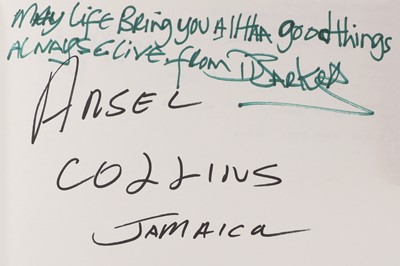 MAy LiFE BRing you AllTHAA good things
ALWAYS CLIVE from D Barker
ANSEL
COLLINS
JAMAICA